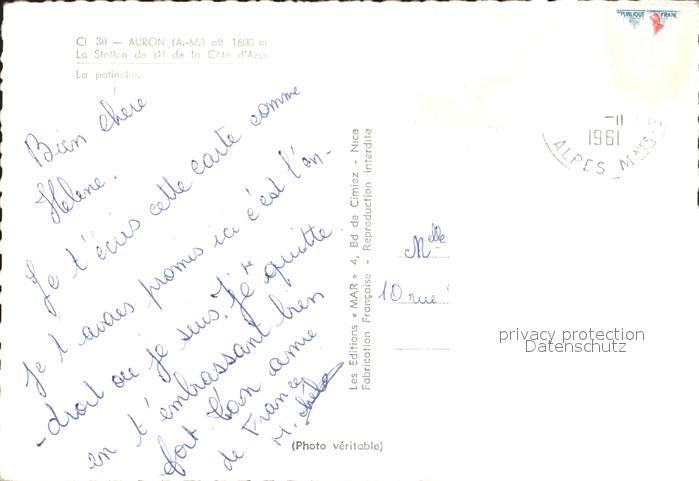 Cl. 30 — AURON (A.-M.) alt 1600 m
La Station de ski de la Côte d'Azur
La patinoire.
Bien chère
Hélène.
Je t'écris cette carte comme
je t'avais promis ici c'est l'en-
-droit où je suis. Je te quitte
en t'embrassant bien
fort. Ton amie
de France
Les Editions « MAR » 4, Bd de Cimiez - Nice
Fabrication Française - Reproduction interdite
(Photo véritable)
PUBLIQUE FRANC
-11
1961
ALPES MMES
Melle
10 rue
privacy protection
Datenschutz